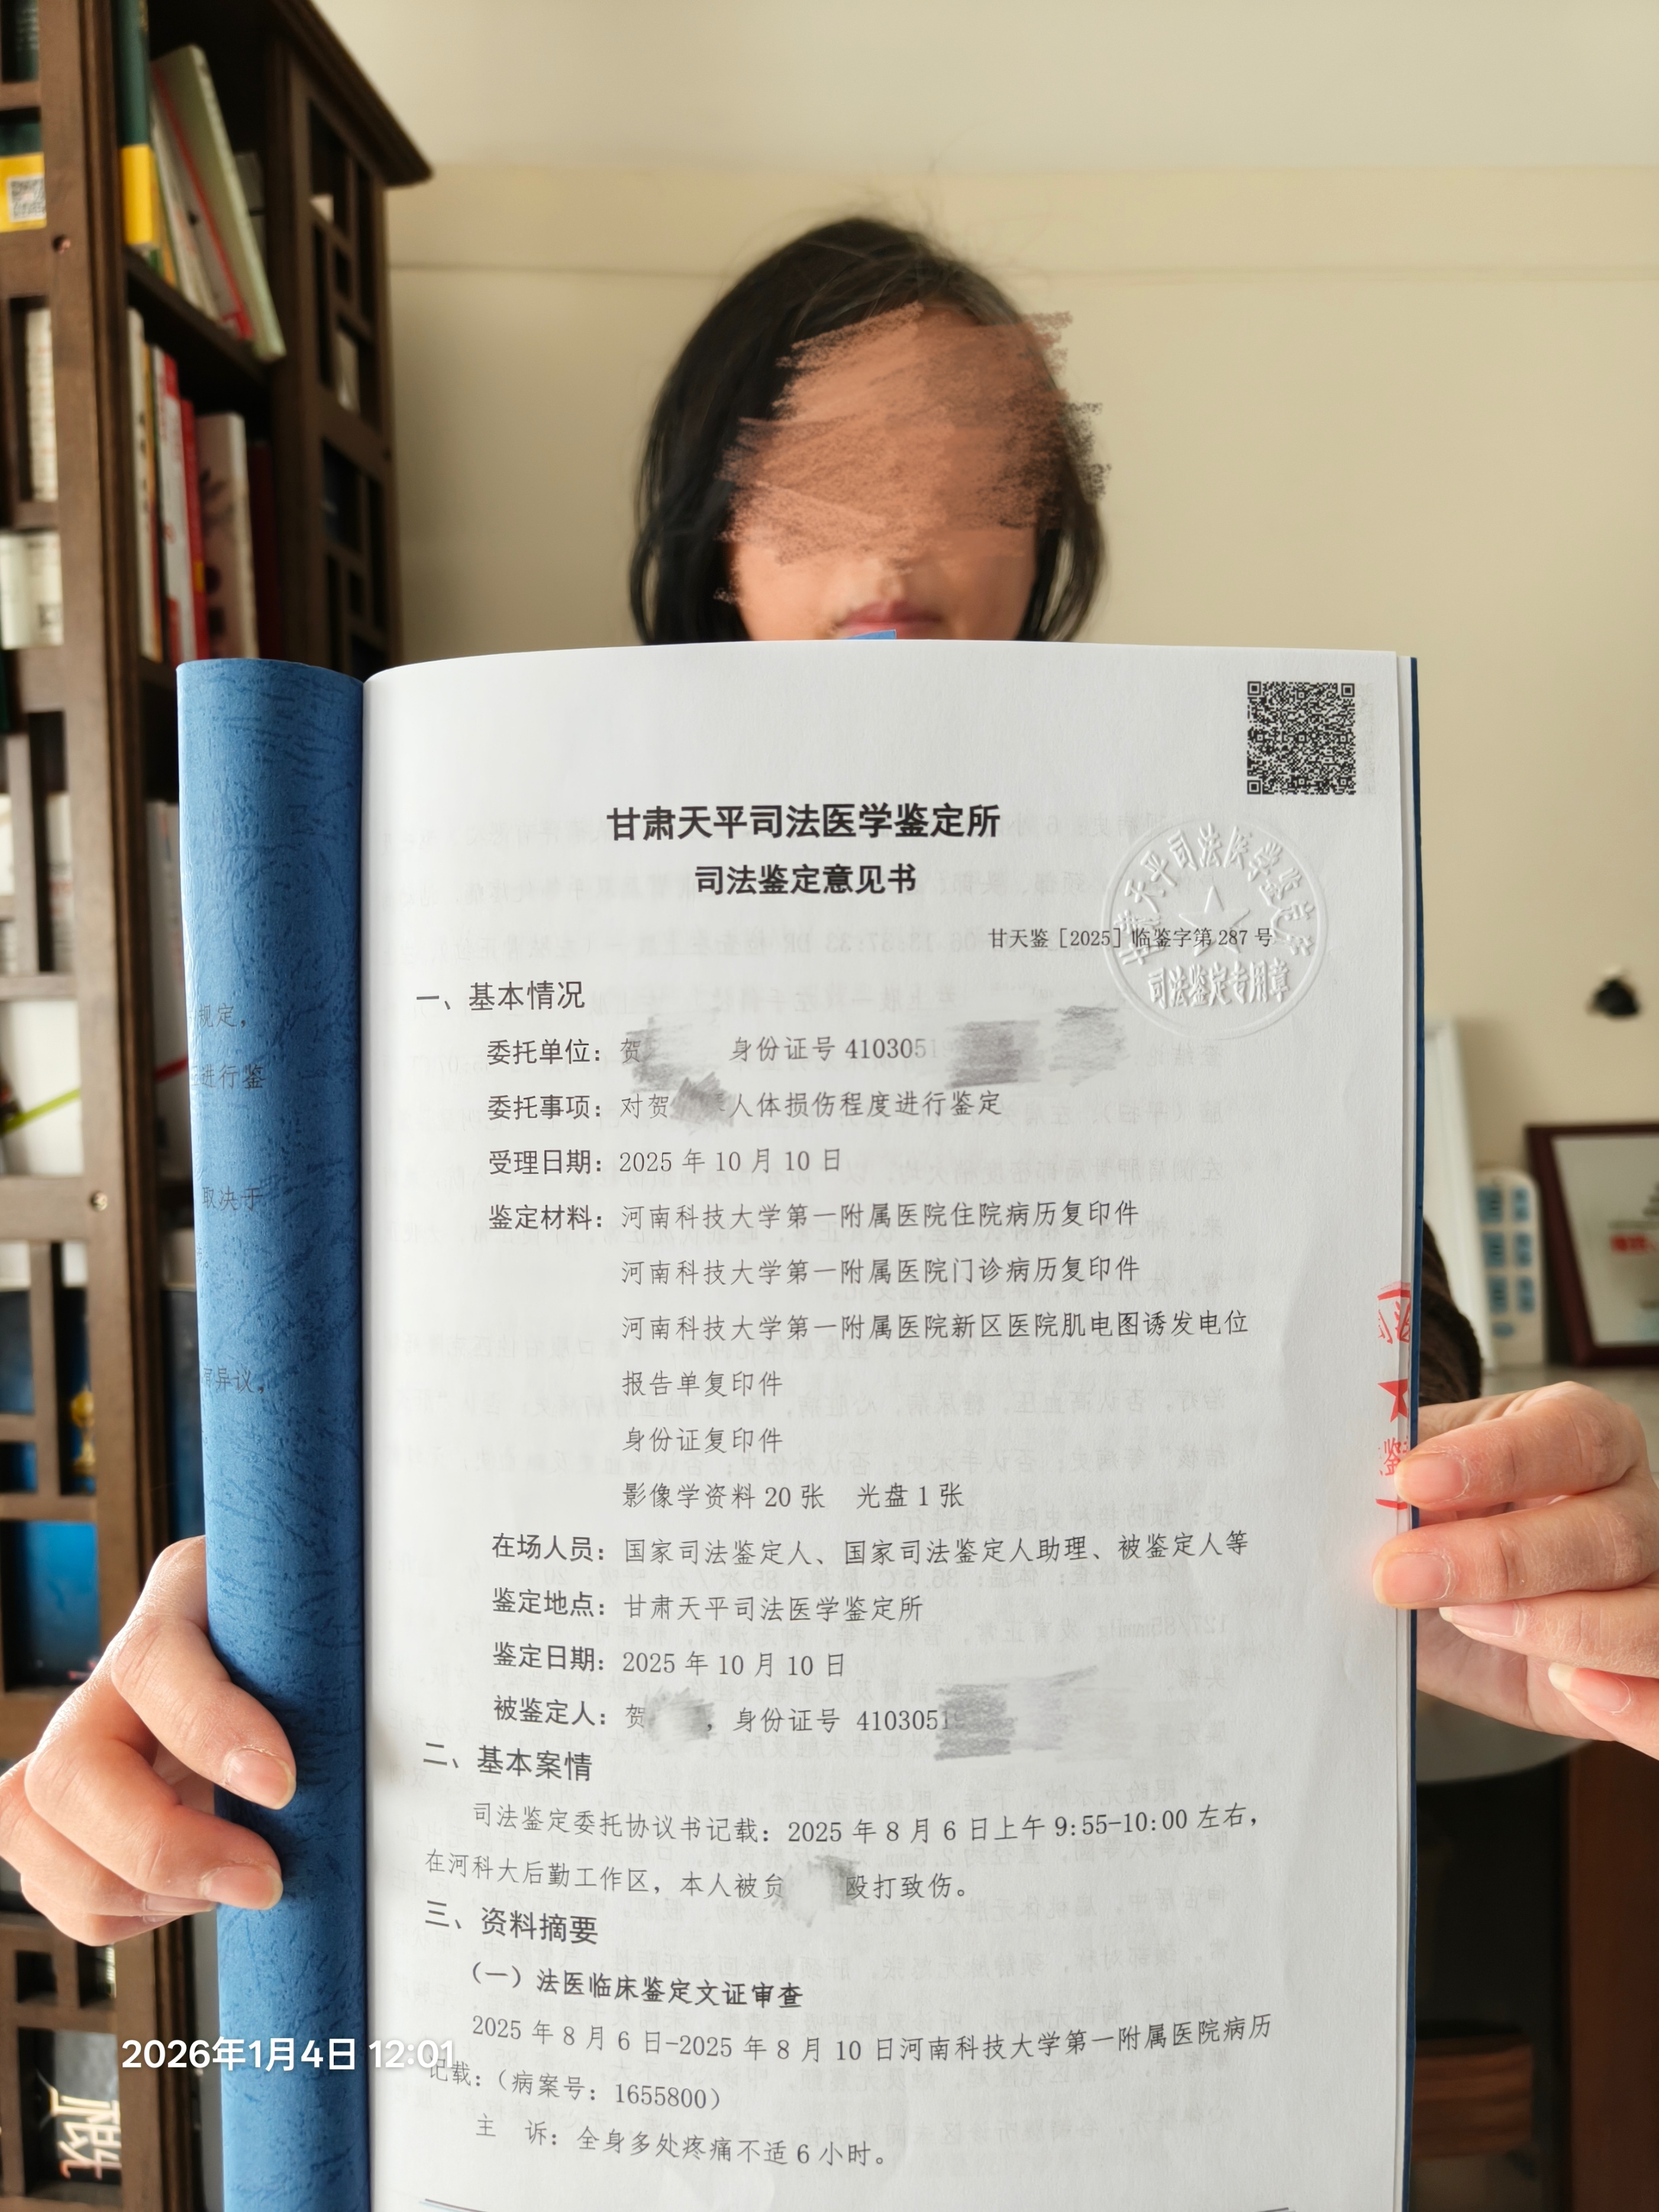 甘肃天平司法医学鉴定所
司法鉴定意见书
甘天鉴［2025］临鉴字第 287 号
天平司法医学鉴定
司法鉴定专用章
一、基本情况
委托单位：贺 身份证号 4103051
委托事项：对贺 人体损伤程度进行鉴定
受理日期：2025 年 10 月 10 日
鉴定材料：河南科技大学第一附属医院住院病历复印件
河南科技大学第一附属医院门诊病历复印件
河南科技大学第一附属医院新区医院肌电图诱发电位
报告单复印件
身份证复印件
影像学资料 20 张 光盘 1 张
在场人员：国家司法鉴定人、国家司法鉴定人助理、被鉴定人等
鉴定地点：甘肃天平司法医学鉴定所
鉴定日期：2025 年 10 月 10 日
被鉴定人：贺 ，身份证号 4103051
二、基本案情
司法鉴定委托协议书记载：2025 年 8 月 6 日上午 9:55-10:00 左右，
在河科大后勤工作区，本人被 殴打致伤。
三、资料摘要
（一）法医临床鉴定文证审查
2025 年 8 月 6 日-2025 年 8 月 10 日河南科技大学第一附属医院病历
记载：（病案号：1655800）
主 诉：全身多处疼痛不适 6 小时。
规定，
进行鉴
取决于
异议，
2026年1月4日 12:01